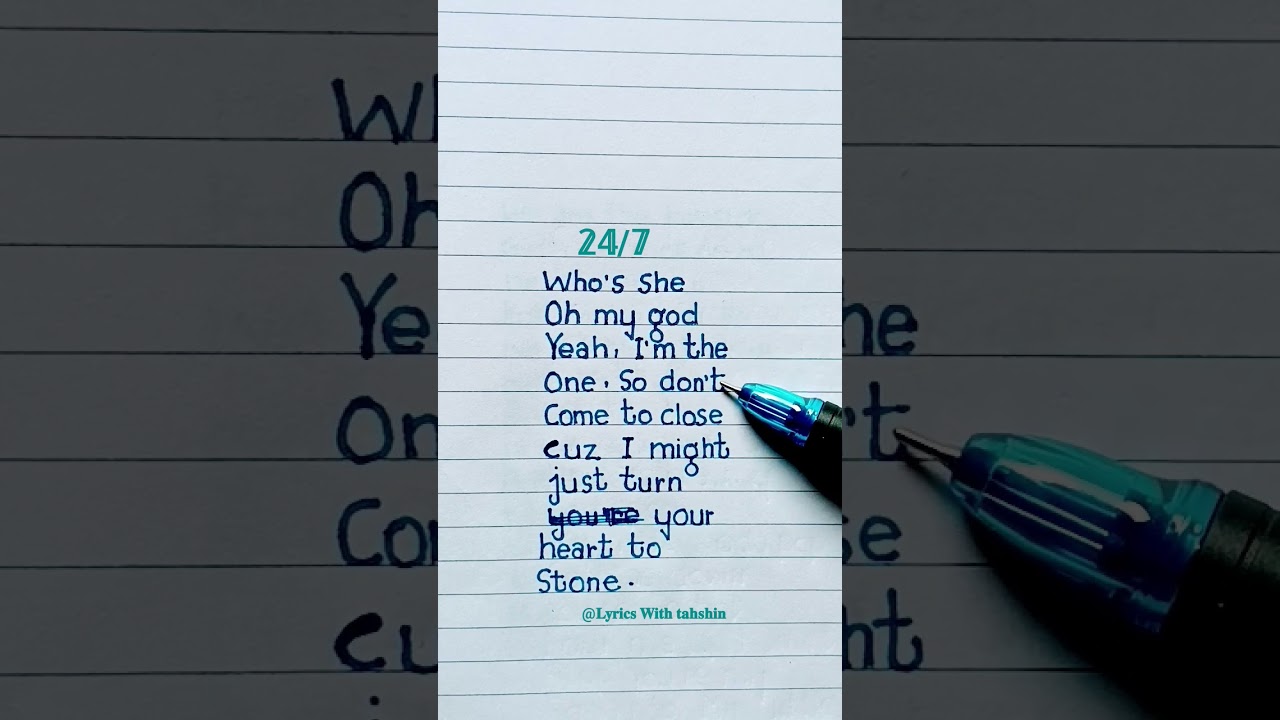 24/7
Who's She
Oh my god
Yeah, I'm the
One. So don't
Come to close
cuz I might
just turn
you're your
heart to
Stone.
@Lyrics With tahshin